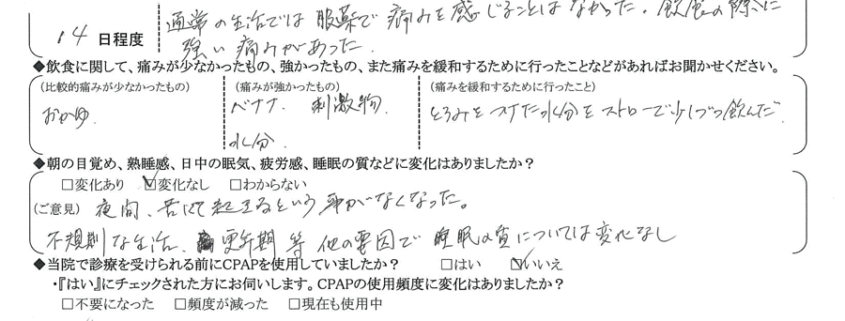 通常の生活では服薬で痛みを感じることはなかった。飲食の際に
14 日程度 強い痛みがあった.
◆飲食に関して、痛みが少なかったもの、強かったもの、また痛みを緩和するために行ったことなどがあればお聞かせください。
(比較的痛みが少なかったもの) (痛みが強かったもの) (痛みを緩和するために行ったこと)
おかゆ. バナナ. 刺激物. とろみをつけた水分をストローで少しづつ飲んだ.
水分.
◆朝の目覚め、熟睡感、日中の眠気、疲労感、睡眠の質などに変化はありましたか?
□変化あり ☑変化なし □わからない
(ご意見) 夜間、苦しくて起きるという事がなくなった。
不規則な生活、更年期等他の要因で睡眠の質については変化なし
◆当院で診療を受けられる前にCPAPを使用していましたか? □はい ☑いいえ
・『はい』にチェックされた方にお伺いします。CPAPの使用頻度に変化はありましたか?
□不要になった □頻度が減った □現在も使用中